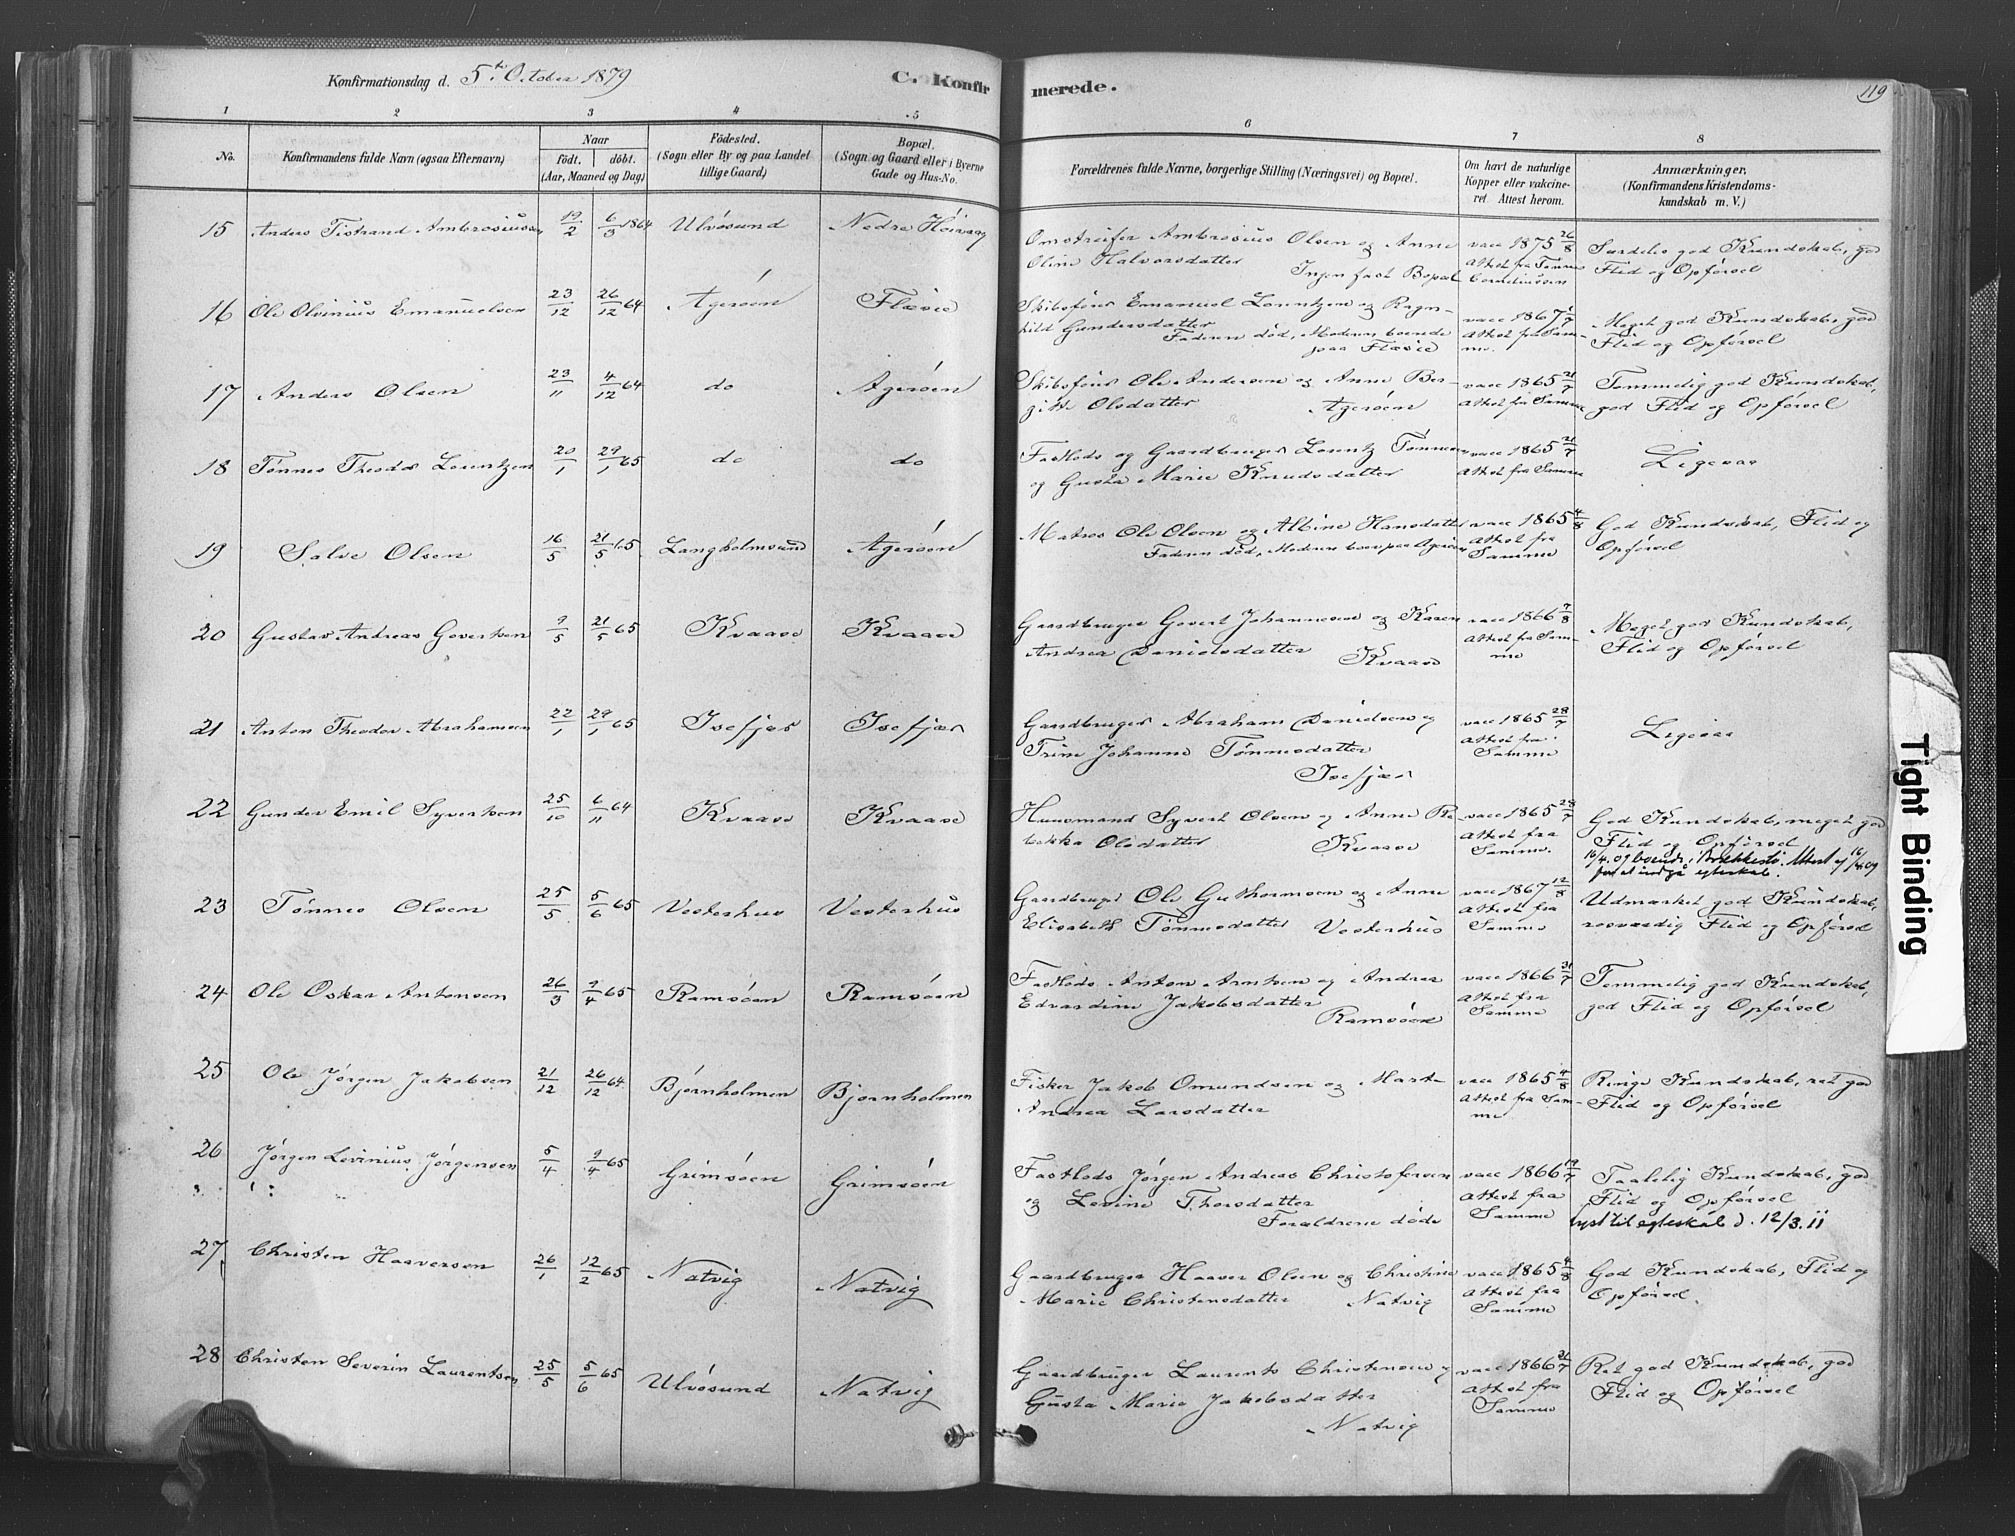 Konfirmationsdag d. 5te October 1879
C. Konfir
merede.
119
1 2 3 4 5
6 7 8
No.
Konfirmandens fulde Navn (ogsaa Efternavn)
Naar
födt. döbt.
(Aar, Maaned og Dag)
Födested.
(Sogn eller By og paa Landet
tillige Gaard)
Bopæl.
(Sogn og Gaard eller i Byerne
Gade og Hus-No.
Forældrenes fulde Navne, borgerlige Stilling (Næringsvei) og Bopæl.
Om havt de naturlige
Kopper eller vakcine-
ret. Attest herom.
Anmærkninger,
(Konfirmandens Kristendoms-
kundskab m. V.)
15 Anders Tistrand Ambrosiussen 19/2 6/3 1864 Ulvøsund Nedre Høivaag
Omstreifer Ambrosius Olsen og Anne
Oline Halvorsdatter
Ingen fast Bopæl
vacc 1875 26/8
Attest fra Tønnes
Corneliussen
Særdeles god Kundskab, god
Flid og Opførsel
16 Ole Olvinius Emanuelsen 23/12 26/12 64 Agerøen Flæsie
Skibsfører Emanuel Lorentzen og Ragn-
hild Gundersdatter
Faderen død, Moderen boende
paa Flæsie
vacc 1867 1/7
Attest fra Sam-
me.
Meget god Kundskab, god
Flid og Opførsel
17 Anders Olsen 23/11 4/12 64 do Agerøen
Skibsfører Ole Andersen og Anne Ber-
gitte Olsdatter
Agerøen
vacc 1865 21/7
Attest fra Samme
Temmelig god Kundskab,
god Flid og Opførsel
18 Tønnes Theodor Lorentzen 20/1 29/1 65 do do
Fastlods og Gaardbruger Lorentz Tønnesen
og Gusta Marie Knudsdatter
vacc 1865 21/7
Attest fra Samme
Ligesaa
19 Salve Olsen 16/5 21/5 65 Langholmsund Agerøen
Matros Ole Olsen og Albine Hansdatter
Faderen død, Moderen boer paa Agerøen
vacc 1865 4/8
Attest fra
Samme
God Kundskab, Flid og
Opførsel
20 Gustav Andreas Govertsen 9/5 21/5 65 Kvaase Kvaase
Gaardbruger Govert Johannesen og Karen
Andrea Danielsdatter
Kvaase
vacc 1866 7/8
Attest fra Sam-
me
Meget god Kundskab,
Flid og Opførsel
21 Anton Theodor Abrahamsen 22/1 29/1 65 Isefjær Isefjær
Gaardbruger Abraham Danielsen og
Trine Johanne Tønnesdatter
Isefjær
vacc 1865 28/7
Attest fra
Samme
Ligesaa
22 Gunder Emil Syvertsen 25/10 6/11 64 Kvaase Kvaase
Huusmand Syvert Olsen og Anne Re-
bekka Olsdatter
Kvaase
vacc 1865 28/7
Attest fra
Samme.
God Kundskab, meget god
Flid og Opførsel
16/4.09 boende i Brekkestø. Attest af 16/4.09
for at indgå egteskab.
23 Tønnes Olsen 25/5 5/6 65 Vesterhus Vesterhus
Gaardbruger Ole Guthormsen og Anne
Elisabeth Tønnesdatter Vesterhus
vacc 1867 12/8
Attest fra
Samme
Udmærket god Kundskab,
rosværdig Flid og Opførsel
24 Ole Oskar Antonsen 26/3 9/4 65 Ramsøen Ramsøen
Fastlods Anton Arntsen og Andrea
Edvardine Jakobsdatter
Ramsøen
vacc 1866 31/7
Attest fra
Samme
Temmelig god Kundskab,
god Flid og Opførsel
25 Ole Jørgen Jakobsen 21/12 26/12 64 Bjørnholmen Bjørnholmen
Fisker Jakob Omundsen og Marte
Andrea Larsdatter
vacc 1865 4/8
Attest fra Sam-
me
Ringe Kundskab, ret god
Flid og Opførsel
26 Jørgen Levinius Jørgensen 5/4 9/4 65 Grimsøen Grimsøen
Fastlods Jørgen Andreas Christofersen
og Levine Thorsdatter
Forældrene døde
vacc 1866 19/7
Attest fra
Samme
Taalelig Kundskab, god
Flid og Opførsel
lyst til egteskab d. 12/3.11
27 Christen Haaversen 26/1 12/2 65 Natvig Natvig
Gaardbruger Haaver Olsen og Christine
Marie Christensdatter Natvig
vacc 1865 4/8
Attest fra
Samme
God Kundskab, Flid og
Opførsel.
28 Christen Severin Laurentsen 25/5 5/6 65 Ulvøsund Natvig
Gaardbruger Laurents Christensen og
Gusta Marie Jakobsdatter
Natvig
vacc 1866 21/7
Attest fra
Samme
Ret god Kundskab, god
Flid og Opførsel
Tight Binding